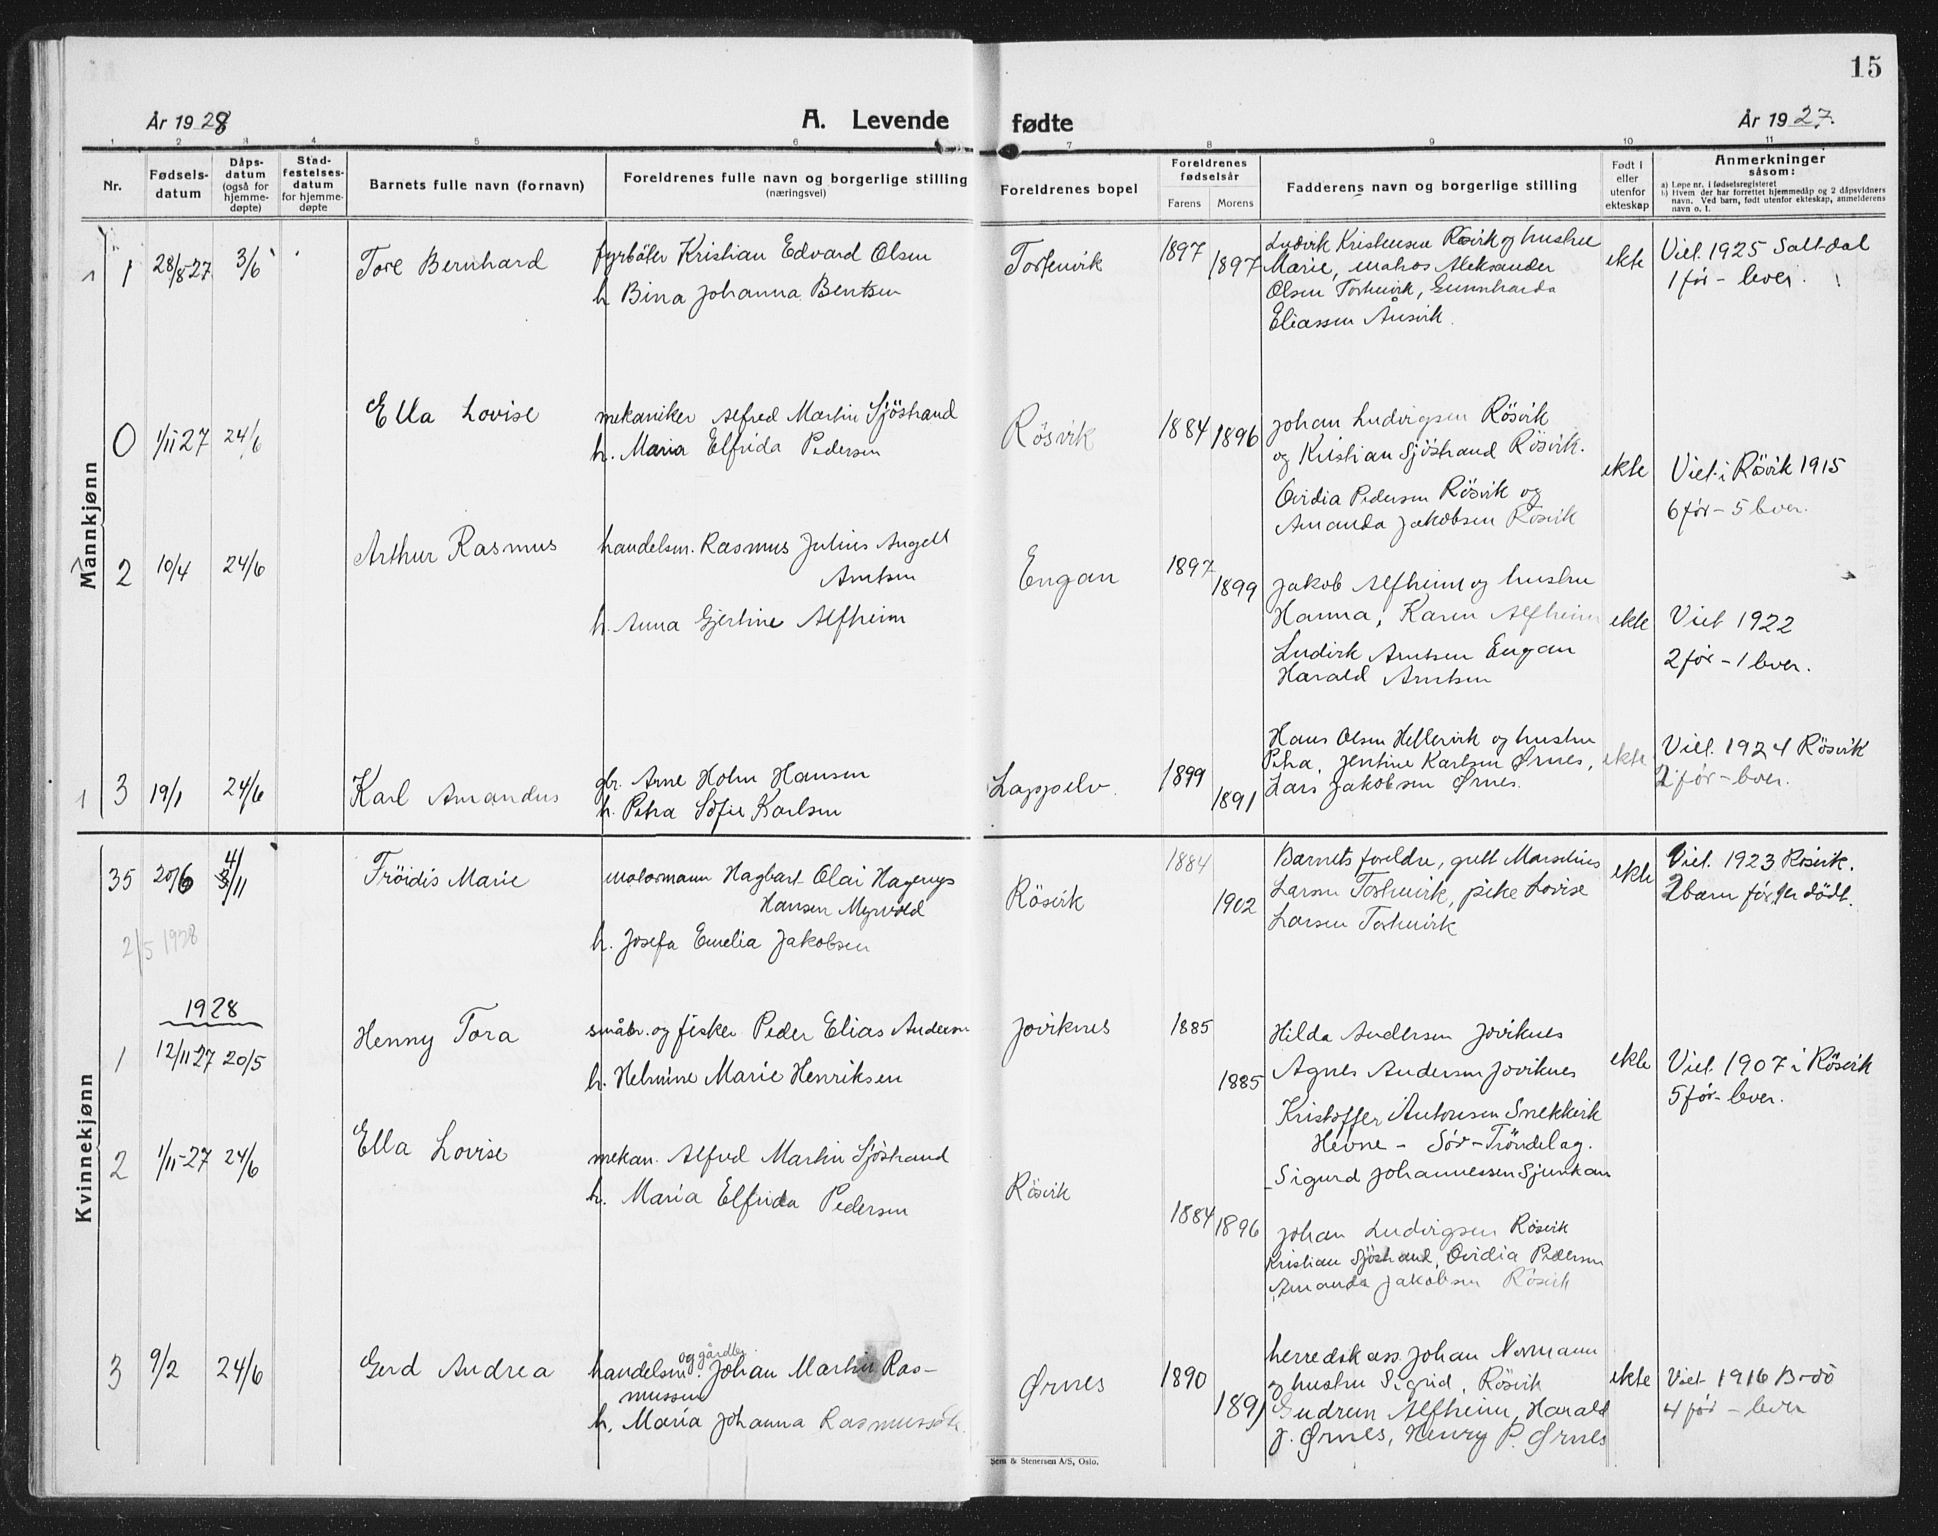 15
År 1928
A. Levende
fødte
År 1927.
1 2 3 4 5 6 7 8 9 10 11
Nr.
Fødsels-
datum
Dåps-
datum
(også for
hjemme-
døpte)
Stad-
festelses-
datum
for hjemme-
døpte
Barnets fulle navn (fornavn)
Foreldrenes fulle navn og borgerlige stilling
(næringsvei)
Foreldrenes bopel
Foreldrenes
fødselsår
Farens
Morens
Fadderens navn og borgerlige stilling
Født i
eller
utenfor
ekteskap
Anmerkninger
såsom:
a) Løpe nr. i fødselsregisteret
b) Hvem der har forrettet hjemmedåp og 2 dåpsvidners
navn. Ved barn, født utenfor ekteskap, anmelderens
navn o. l.
Mannkjønn
1 1 28/8-27 3/6
Tore Bernhard
fyrbøter Kristian Edvard Olsen
h. Bina Johanna Bentsen
Torkenvik
1897
1897
Ludvik Kristensen Røsvik og hustru
Marie, matros Aleksander
Olsen, Gunnharda
Eliassen Åsvik.
ekte
Viet 1925 Saltdal
1 før - lever.
0 1/11 27 24/6
Ella Lovise
mekaniker Alfred Martin Sjöstrand
h. Maria Elfrida Pedersen
Rösvik
1884
1896
Johan Ludvigsen Rösvik
og Kristian Sjöstrand Rösvik.
Ovidia Pedersen Rösvik og
Amanda Jakobsen Rösvik
ekte
Viet i Rösvik 1915
6 før - 5 lever.
2 10/4 24/6
Arthur Rasmus
handelsm. Rasmus Julius Angell
Arntsen
h. Anna Gjertine Alfheim
Engan
1897
1899
Jakob Alfheim og hustru
Hanna, Karen Alfheim
Ludvik Arntsen Engan
Harald Arntsen
ekte
Viet 1922
2 før - 1 lever.
1 3 19/1 24/6
Karl Amandus
gbr. Arne Holm Hansen
h. Petra Sofie Karlsen
Lappelv.
1899
1891
Hans Olsen Hellervik og hustru
Petra, Jentine Karlsen Ørnes,
Lars Jakobsen Ørnes.
ekte
Viet. 1924 Rösvik
før - lever.
Kvinnekjønn
35 20/6 4/11
Fröidis Marie
motormann Hagbart Olai
Hansen Myrvold
h. Josefa Emelia Jakobsen
Rösvik
1884
1902
Barnets foreldre, gutt Marselius
Larsen Torkenvik, pike Lovise
Larsen Torkenvik
ekte
Viet. 1923 Rösvik.
2 barn før, dödt.
2/5 1928
1928
1 12/11-27 20/5
Henny Tora
småbr. og fisker Peder Elias Andersen
h. Helmine Marie Henriksen
Joviknes
1885
1885
Hilda Andersen Joviknes
Agnes Andersen Joviknes
Kristoffer Antonsen Snekkvik
Hevne - Sör-Tröndelag.
Sigurd Johannessen Sjunkan
ekte
Viet. 1907 i Rösvik
5 før - lever.
2 1/11-27 24/6
Ella Lovise
mekan. Alfred Martin Sjöstrand
h. Maria Elfrida Pedersen
Rösvik
1884
1896
Johan Ludvigsen Rösvik
Kristian Sjöstrand, Ovidia Pedersen
Amanda Jakobsen Rösvik
3 9/2 24/6
Gerd Andrea
og gårdbr.
handelsm. Johan Martin Ras-
mussen
h. Maria Johanna
Ørnes
1890
1891
herredskass. Johan Normann
og hustru Sigrid, Rösvik
Gudrun Alfheim, Harald
J. Ørnes, Henry P. Ørnes
ekte
Viet 1916 Bodö
4 før - lever
Sem & Stenersen A/S, Oslo.